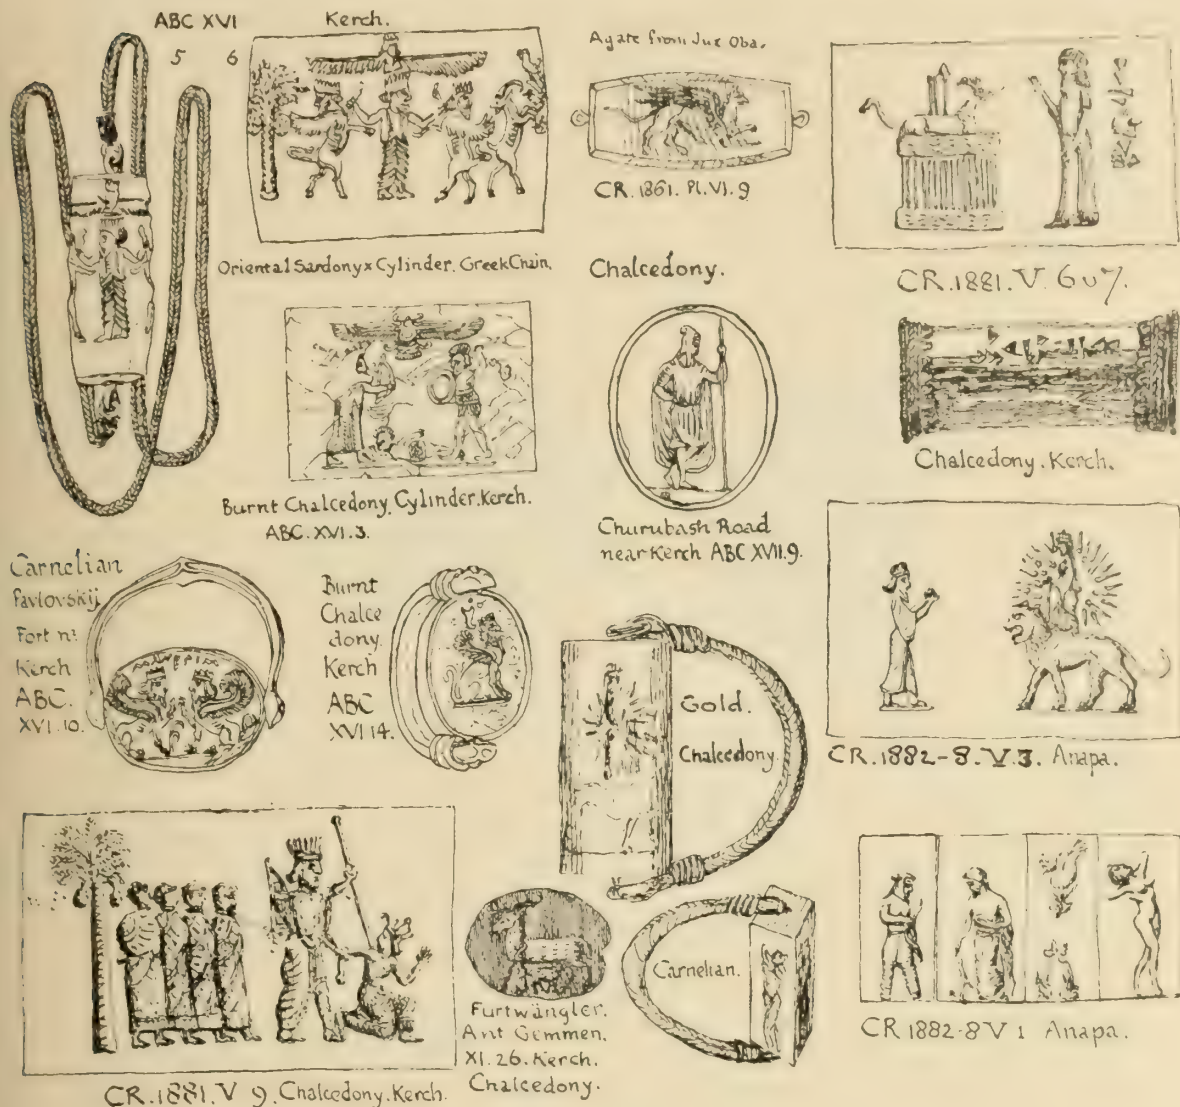 ABC XVI
5 6
Kerch.
Oriental Sardonyx Cylinder. Greek Chain.
Agate from Juz Oba.
CR. 1861. Pl. VI. 9
CR. 1881. V. 6 u 7.
Burnt Chalcedony, Cylinder. Kerch.
ABC. XVI. 3.
Chalcedony.
Churubash Road
near Kerch ABC XVII. 9.
Chalcedony. Kerch.
Carnelian
Pavlovskij
Fort nr.
Kerch
ABC.
XVI. 10.
Burnt
Chalce
dony.
Kerch
ABC
XVI 14.
Gold.
Chalcedony.
CR. 1882-8. V. 3. Anapa.
CR. 1881. V 9. Chalcedony. Kerch.
Furtwängler.
Ant Gemmen.
XI. 26. Kerch.
Chalcedony.
Carnelian.
CR 1882-8 V 1 Anapa.